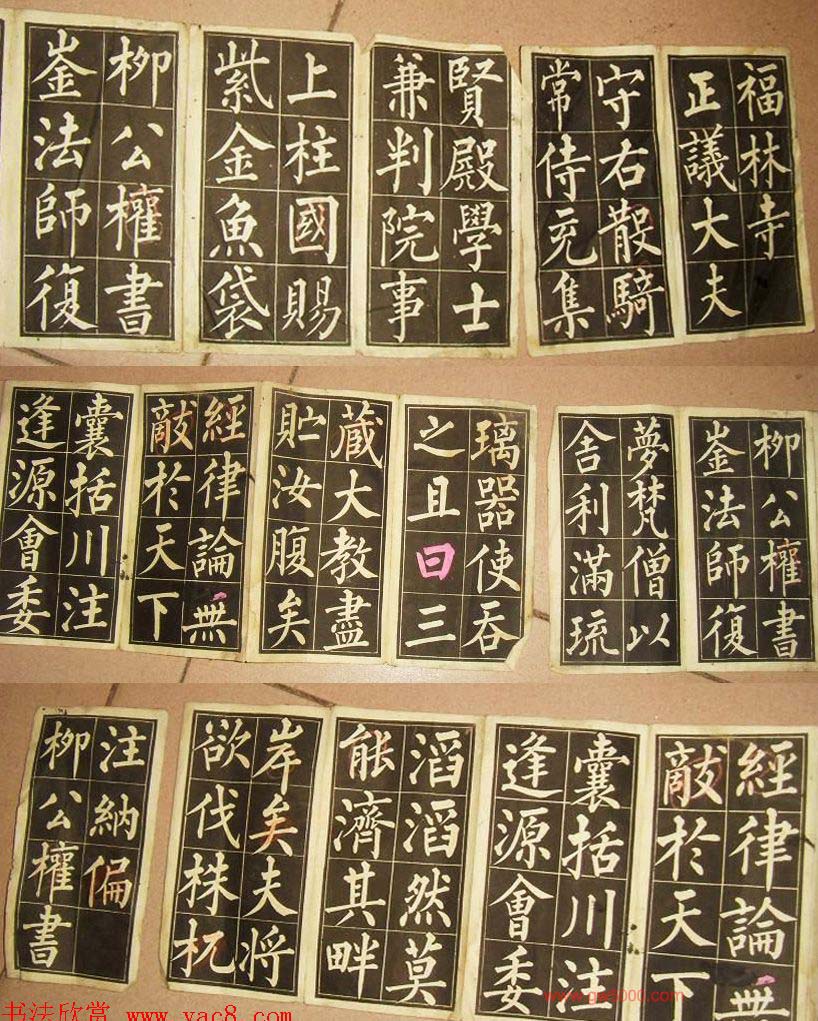 福林寺
正議大夫
守右散騎
常侍充集
賢殿學士
兼判院事
上柱國賜
紫金魚袋
柳公權書
崟法師復
柳公權書
崟法師復
夢梵僧以
舍利滿琉
璃器使吞
之且曰三
蔵大教盡
貯汝腹矣
經律論無
敵於天下
囊括川注
逢源會委
經律論無
敵於天下
囊括川注
逢源會委
滔滔然莫
能濟其畔
岸矣夫將
欲伐株杌
注納偏
柳公權書
书法欣赏 www.yac8.com